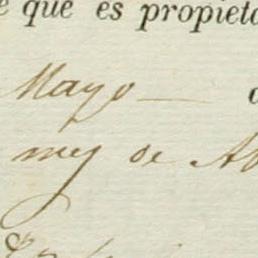 e que es propieta
Mayo
mes de Ab